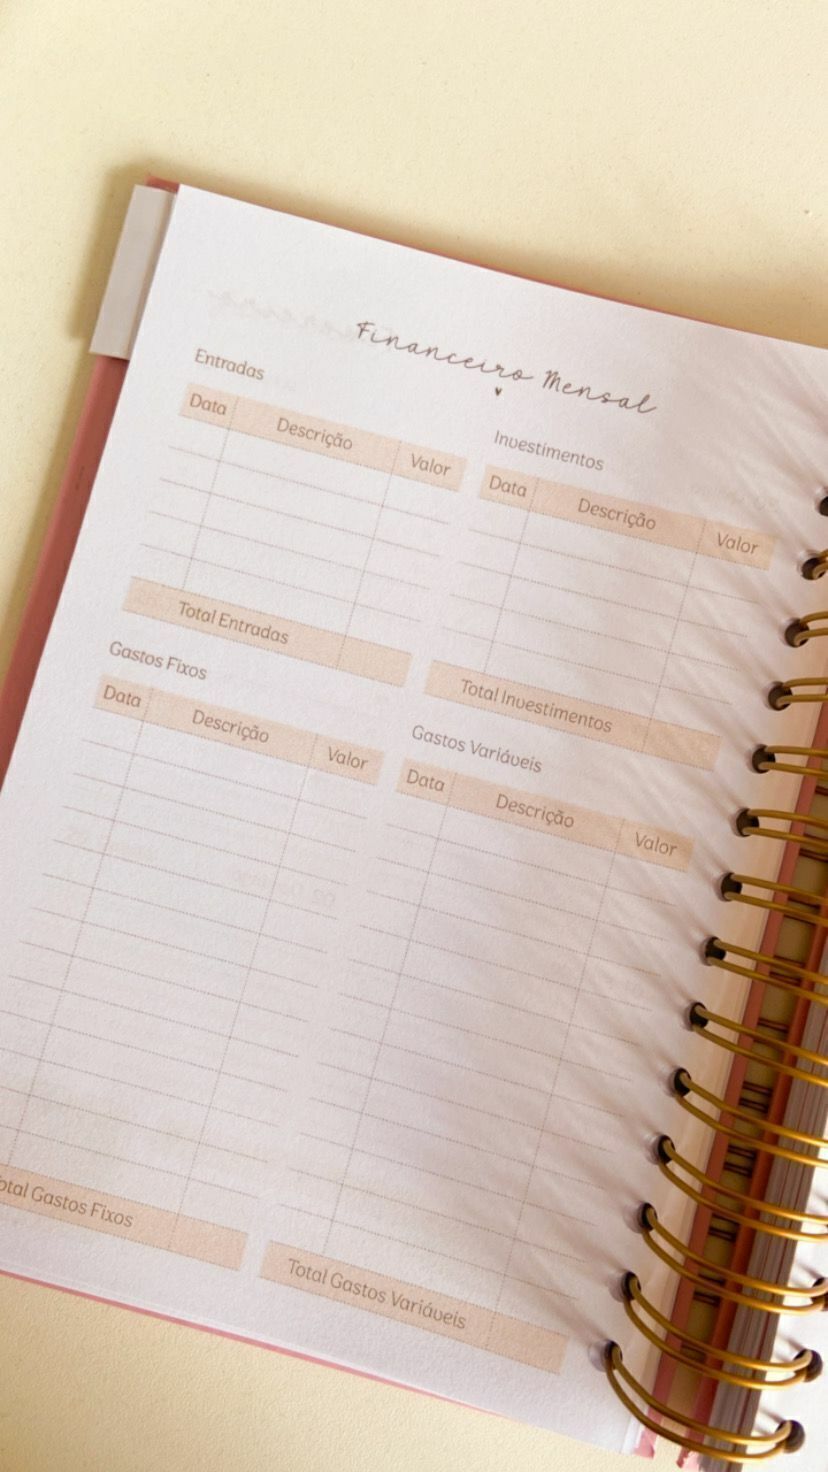 Financeiro Mensal
Entradas
Data Descrição Valor
Total Entradas
Investimentos
Data Descrição Valor
Total Investimentos
Gastos Fixos
Data Descrição Valor
Total Gastos Fixos
Gastos Variáveis
Data Descrição Valor
Total Gastos Variáveis